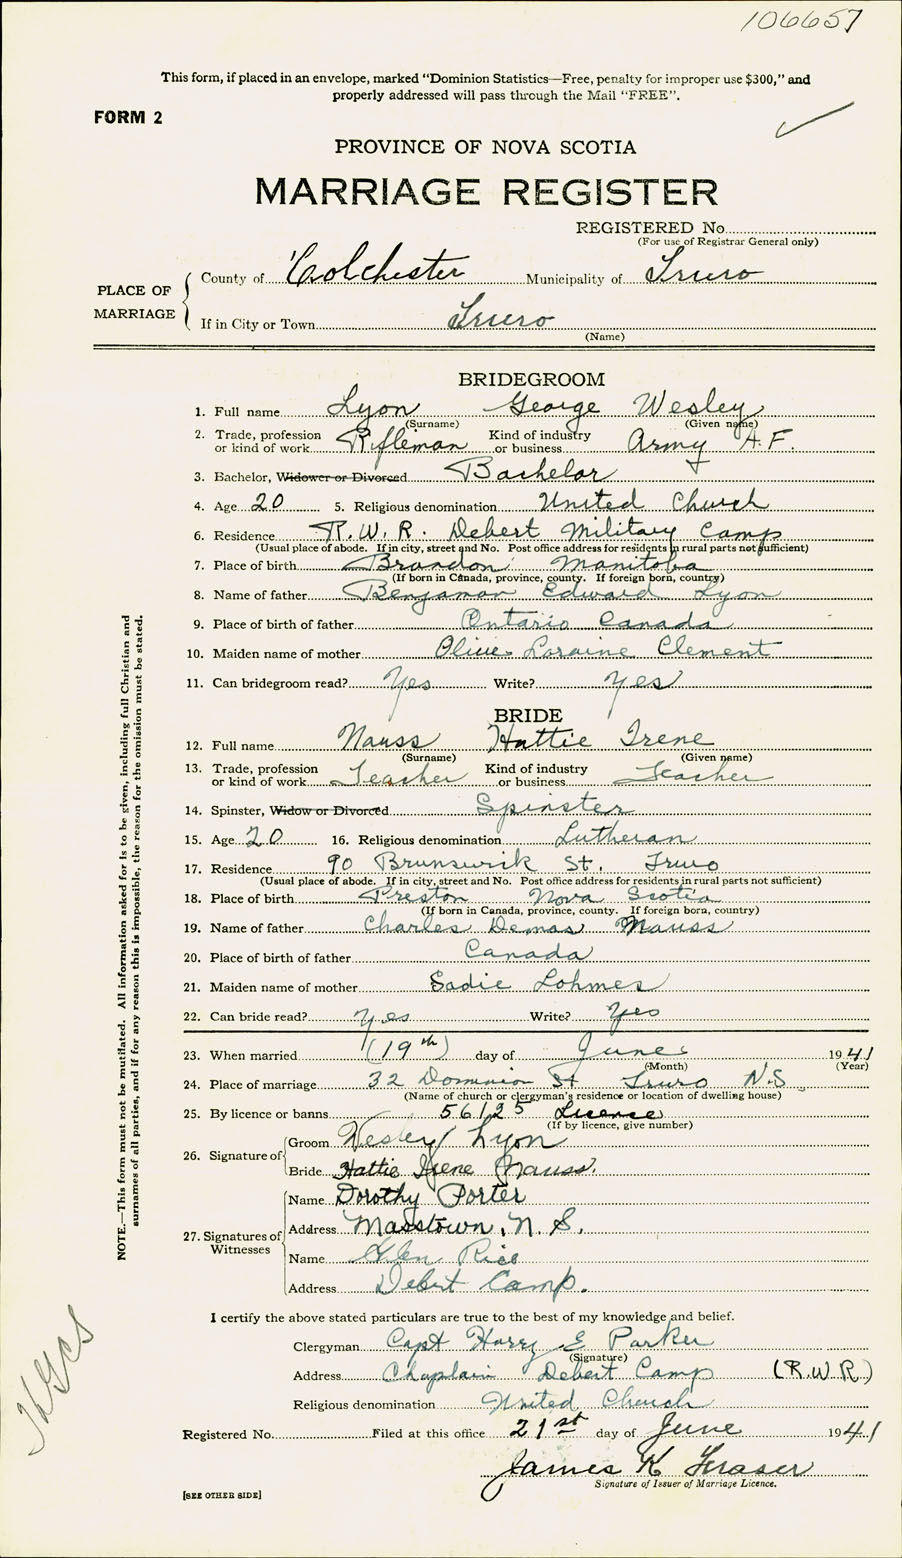 106657
This form, if placed in an envelope, marked “Dominion Statistics—Free, penalty for improper use $300,” and
properly addressed will pass through the Mail “FREE”.
FORM 2
PROVINCE OF NOVA SCOTIA
MARRIAGE REGISTER
REGISTERED No.
(For use of Registrar General only)
PLACE OF MARRIAGE
County of Colchester Municipality of Truro
If in City or Town Truro
(Name)
BRIDEGROOM
1. Full name Lyon George Wesley
(Surname) (Given name)
2. Trade, profession or kind of work Rifleman Kind of industry or business Army A.F.
3. Bachelor, Widower or Divorced Bachelor
4. Age 20 5. Religious denomination United Church
6. Residence R.W.R. Debert Military Camp
(Usual place of abode. If in city, street and No. Post office address for residents in rural parts not sufficient)
7. Place of birth Brandon Manitoba
(If born in Canada, province, county. If foreign born, country)
8. Name of father Benjaman Edward Lyon
9. Place of birth of father Ontario Canada
10. Maiden name of mother Olive Loraine Clement
11. Can bridegroom read? Yes Write? Yes
BRIDE
12. Full name Nauss Hattie Irene
(Surname) (Given name)
13. Trade, profession or kind of work Teacher Kind of industry or business Teacher
14. Spinster, Widow or Divorced Spinster
15. Age 20 16. Religious denomination Lutheran
17. Residence 90 Brunswick St. Truro
(Usual place of abode. If in city, street and No. Post office address for residents in rural parts not sufficient)
18. Place of birth Preston Nova Scotia
(If born in Canada, province, county. If foreign born, country)
19. Name of father Charles Demas Nauss
20. Place of birth of father Canada
21. Maiden name of mother Sadie Lohmes
22. Can bride read? Yes Write? Yes
23. When married (19th) day of June 1941
(Month) (Year)
24. Place of marriage 32 Dominion St Truro N.S
(Name of church or clergyman's residence or location of dwelling house)
25. By licence or banns 56125 Licence
(If by licence, give number)
26. Signature of
Groom Wesley Lyon
Bride Hattie Irene Nauss.
27. Signatures of Witnesses
Name Dorothy Porter
Address Masstown, N. S.
Name Glen Rice
Address Debert Camp.
I certify the above stated particulars are true to the best of my knowledge and belief.
Clergyman Capt Harry E Parker
(Signature)
Address Chaplain Debert Camp (R.W.R.)
Religious denomination United Church
Registered No. Filed at this office 21st day of June 1941
James K Fraser
Signature of Issuer of Marriage Licence.
[SEE OTHER SIDE]
NOTE.—This form must not be mutilated. All information asked for is to be given, including full Christian and
surnames of all parties, and if for any reason this is impossible, the reason for the omission must be stated.